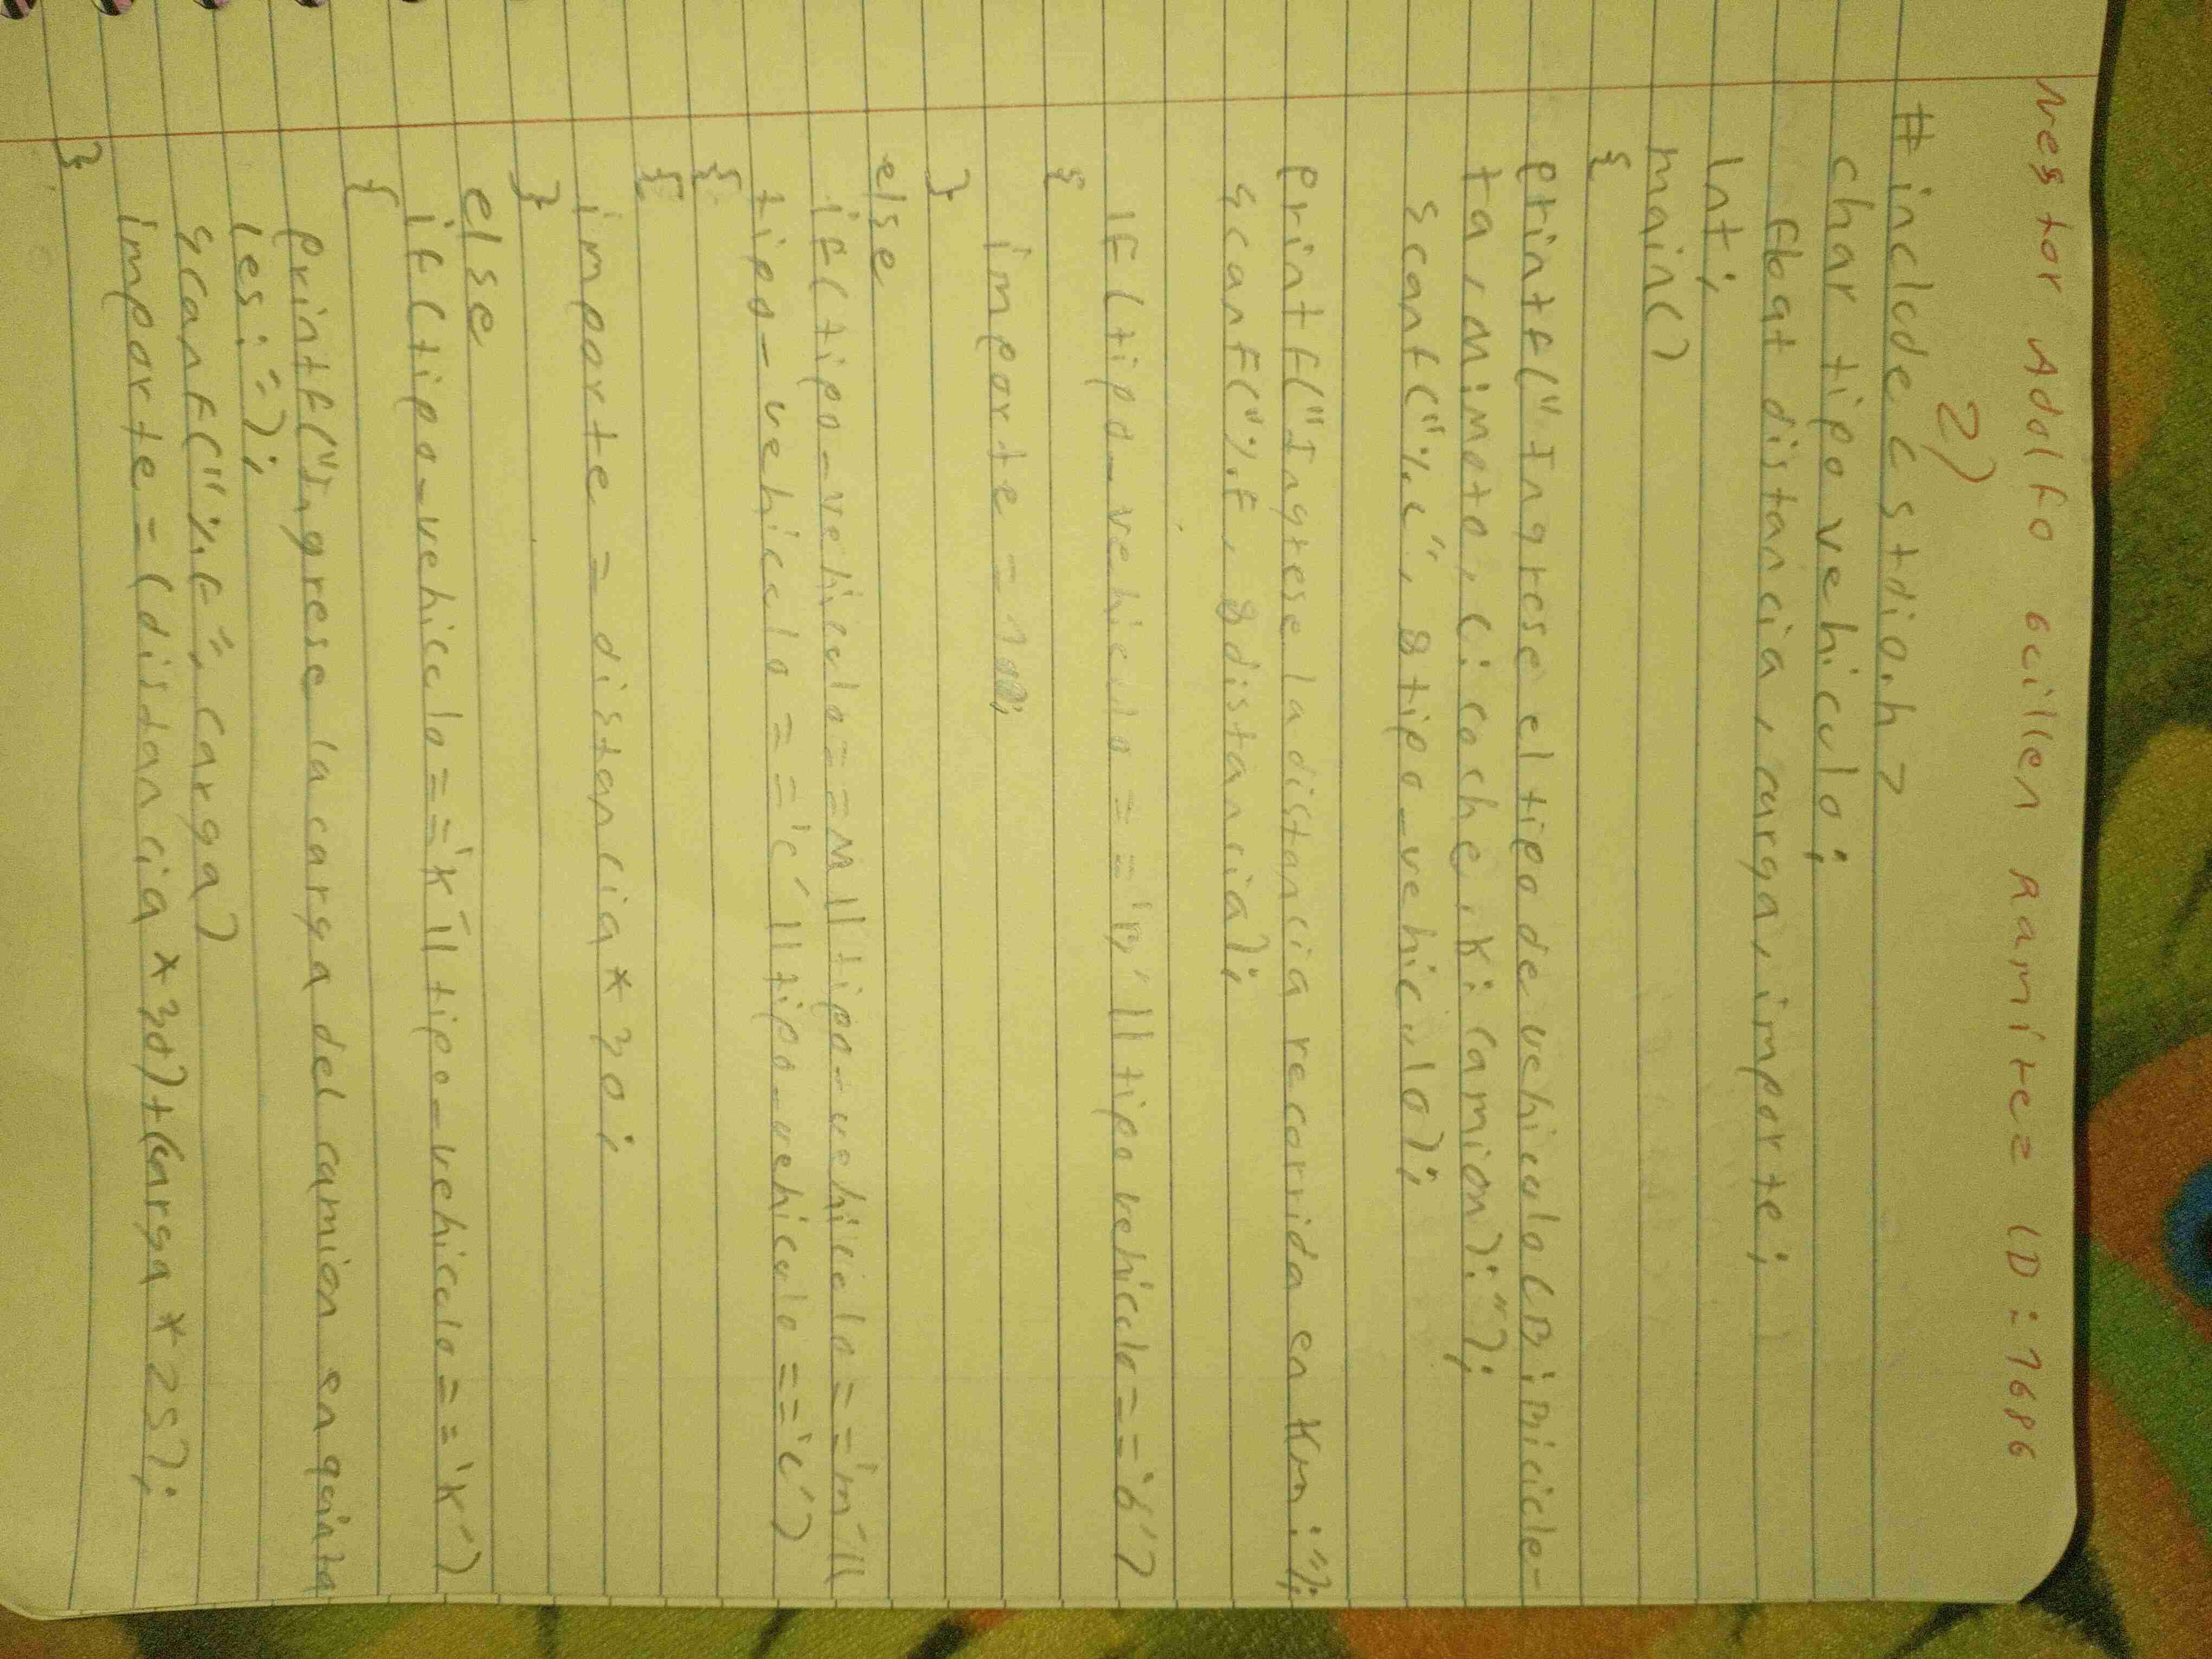 Nestor Adolfo Guillen Ramirez ID: 7686
2)
#include <stdio.h>
char tipo vehiculo;
float distancia, carga, importe;
Int;
main()
{
printf("Ingrese el tipo de vehiculo (B: Bicicle-
ta, M: moto, C: coche, K: camion): ");
scanf("%c", &tipo_vehiculo);
printf("Ingrese la distancia recorrida en Km: ");
scanf("%f, &distancia);
If (tipo_vehiculo == 'B' || tipo vehiculo == 'b')
{
importe = 100;
}
else
if (tipo_vehiculo == M || tipo_vehiculo == 'm' ||
tipo_vehiculo == 'C' || tipo_vehiculo == 'c')
{
{
importe = distancia * 30;
}
else
if (tipo_vehiculo == 'K' || tipo_vehiculo == 'k')
{
printf("Ingrese la carga del camion en quinta
les: ");
scanf("%f", carga)
importe = (distancia * 30) + (carga * 25);
}